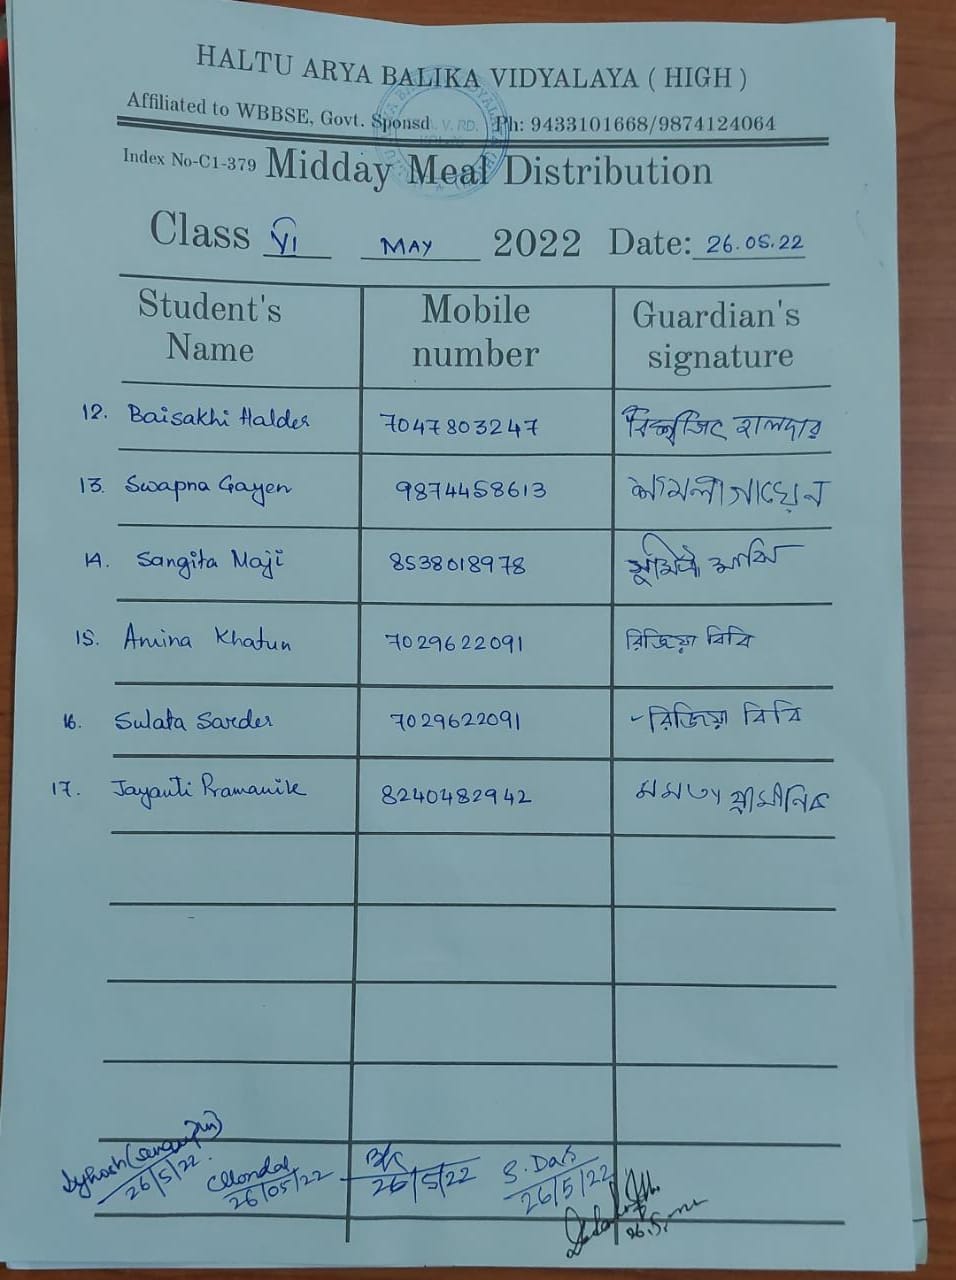 HALTU ARYA BALIKA VIDYALAYA ( HIGH )
Affiliated to WBBSE, Govt. Sponsd Ph: 9433101668/9874124064
Index No-C1-379 Midday Meal Distribution
Class VI MAY 2022 Date: 26.05.22
Student's Name Mobile number Guardian's signature
12. Baisakhi Halder 7047803247 বিশ্বজিৎ হালদার
13. Swapna Gayen 9874458613 গায়েন
14. Sangita Maji 8538018978 মাঝি
15. Amina Khatun 7029622091 রিজিয়া বিবি
16. Sulata Sarder 7029622091 রিজিয়া বিবি
17. Jayanti Pramanik 8240482942 মমতা প্রামানিক
26/5/22. CMondal 26/05/22 26/5/22 S. Das 26/5/22